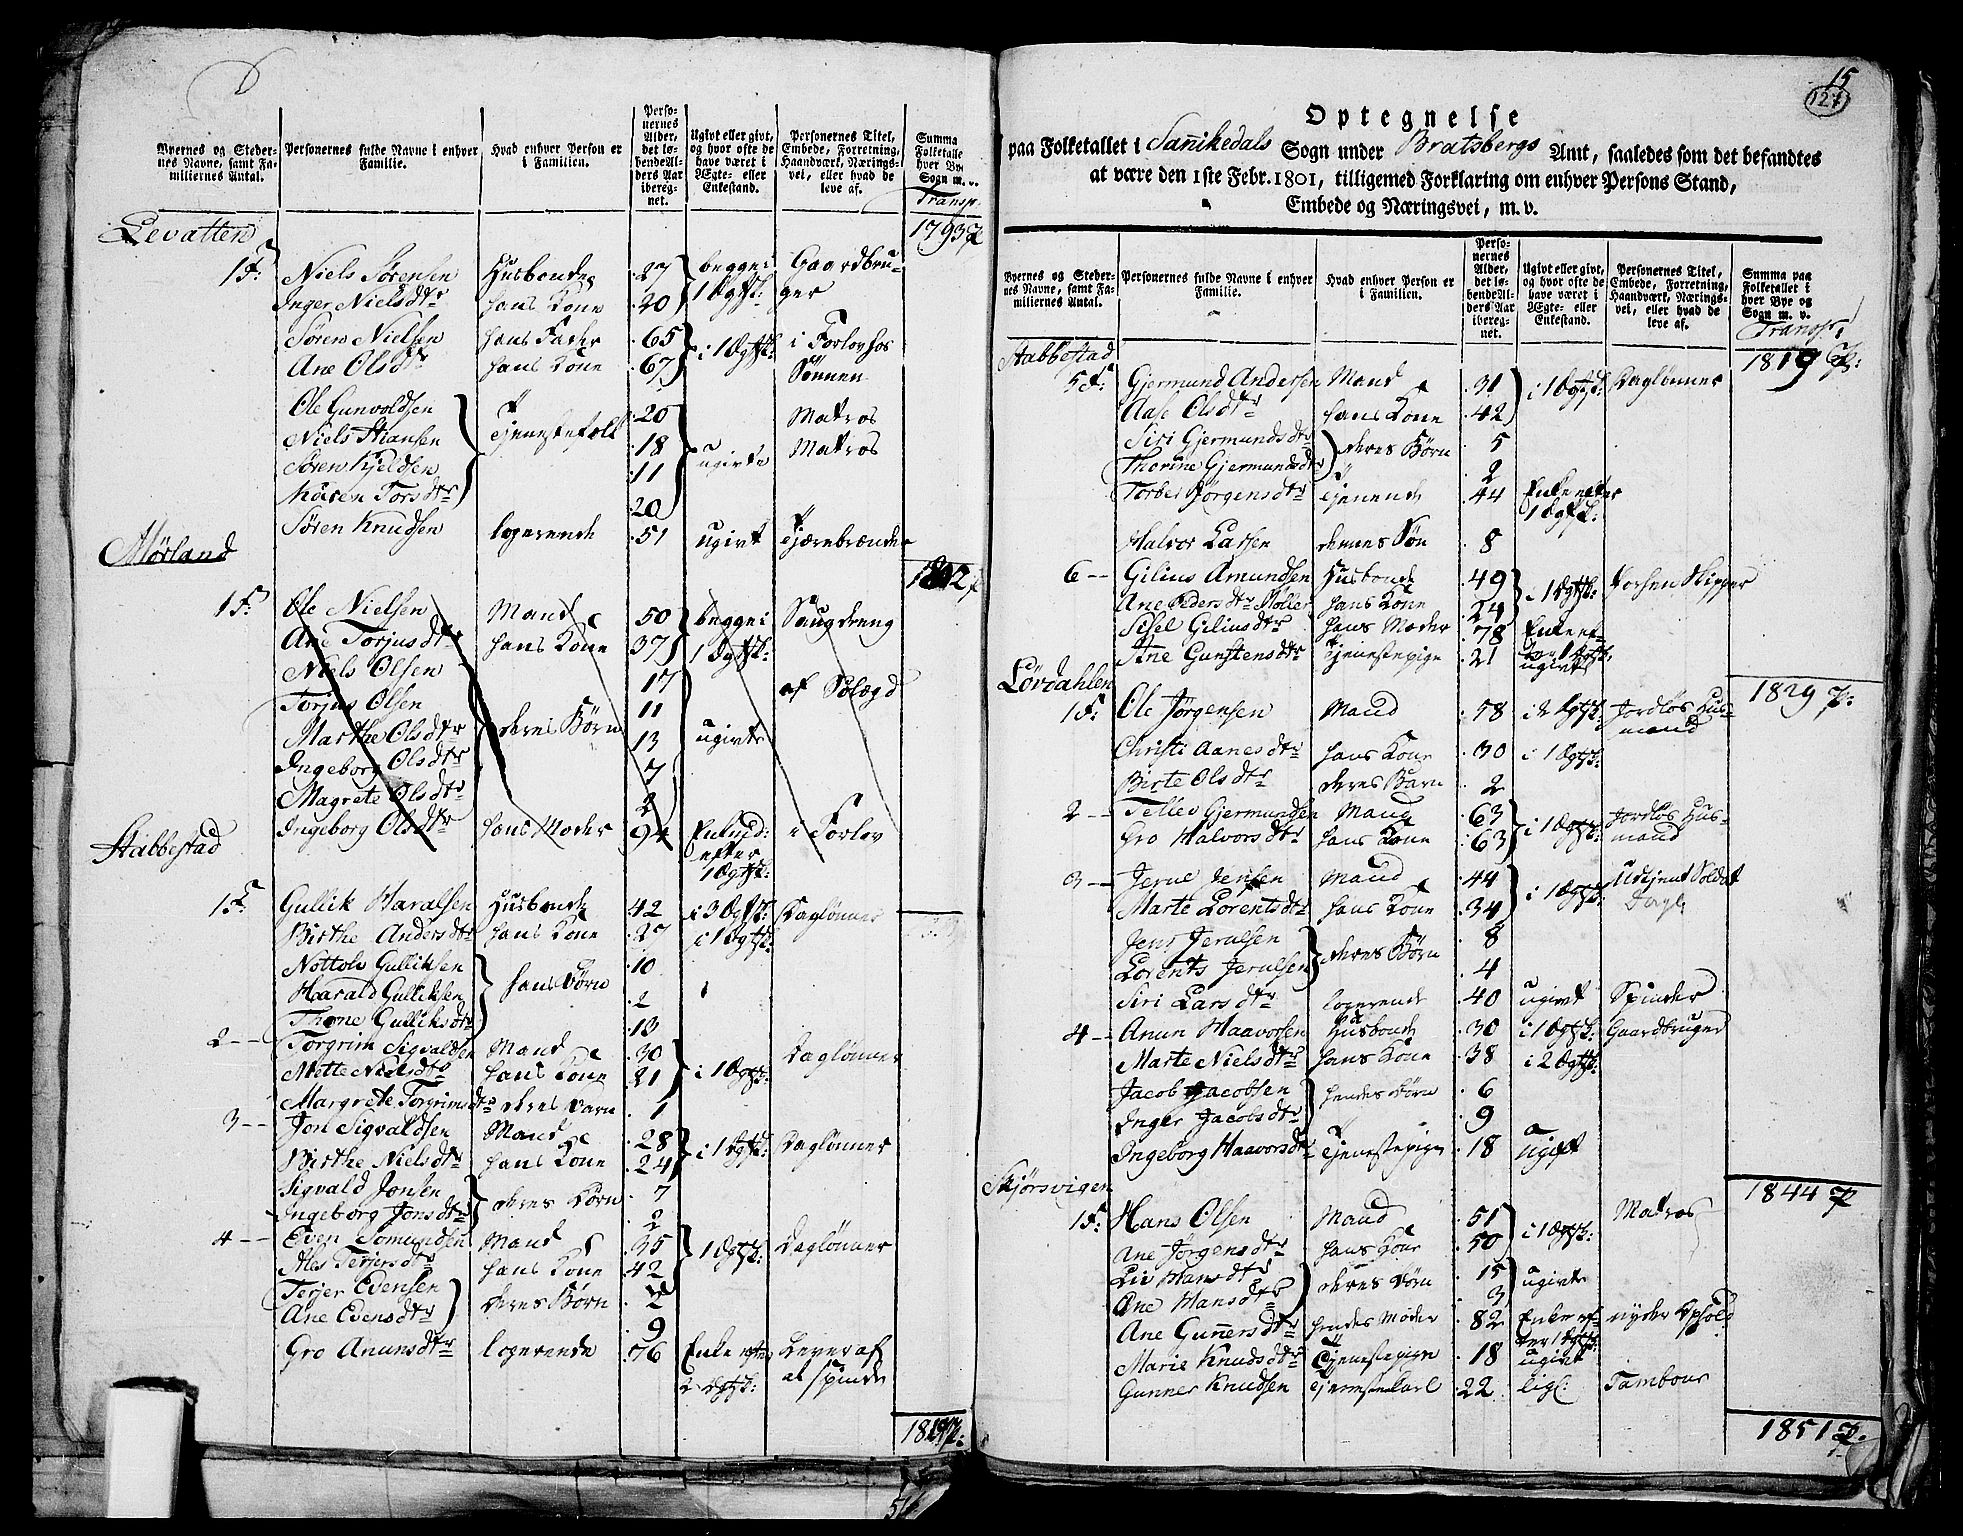 Byernes og Steder-
nes Navne, samt Fa-
miliernes Antal.
Personernes fulde Navne i enhver
Familie.
Hvad enhver Person er
i Familien.
Perso-
nernes
Alder,
det lø-
bende Al-
ders Aar
ibereg-
net.
Ugivt eller givt,
og hvor ofte de
have været i
Ægte- eller
Enkestand.
Personernes Titel,
Embede, Forretning,
Haandværk, Nærings-
vei, eller hvad de
leve af.
Summa
Folketalle
hver By
Sogn m. v.
Transp.
Levatten 1793 P
1 F: Niels Sørensen Husbonde 27 begge i Gaardbru-
Inger Nielsdtr hans Kone 20 1 Ægtsk: ger
Søren Nielsen hans Fader 65 i 1 Ægtsk: i Forlov hos
Ane Olsdtr hans Kone 67 Sønnen
Ole Gunvoldsen 20 Matros
Niels Stiansen Tjenestefolk 18 ugivte Matros
Søren Kjeldsen 11
Karen Torsdtr 20
Søren Knudsen logerende 51 ugivt Tjærebrænder
Mørland 1802 P
1 F: Ole Nielsen Mand 50 begge i Saugdreng
Ane Torjusdtr hans Kone 37 1 Ægtsk:
Niels Olsen 17 af Sølægd
Torjus Olsen 11
Marthe Olsdtr deres Børn 13 ugivte
Ingeborg Olsdtr 7
Magrete Olsdtr 2
Ingeborg Olsdtr hans Moder 94 i Forlov
efter
1 Ægtsk:
Stabbestad
1 F: Gullik Haralsen Husbonde 42 i 3 Ægtsk: Daglønner
Birthe Andersdtr hans Kone 27 i 1 Ægtsk:
Nottolv Gulliksen 10
Harald Gulliksen hans Børn 2
Thone Gulliksdtr 13
2 -- Torgrim Sigvaldsen Mand 30 i 1 Ægtsk: Daglønner
Mette Nielsdtr hans Kone 21
Margrete Torgrimsdtr deres Barn 1
3 -- Jon Sigvaldsen Mand 28 i 1 Ægtsk: Daglønner
Birthe Nielsdtr hans Kone 24
Sigvald Jonsen deres Børn 7
Ingeborg Jonsdtr 2
4 -- Even Tomundsen Mand 35 1 Ægtsk: Daglønner
Terjersdtr hans Kone 42
Terjer Evensen deres Børn 2
Ane Evensdtr 9
Gro Anunsdtr logerende 76 Enke efter Lever af
2 Ægtsk: at spinde
1819 P:
15
127
Optegnelse
paa Folketallet i Sanikedals Sogn under Bratsbergs Amt, saaledes som det befandtes
at være den 1ste Febr. 1801, tilligemed Forklaring om enhver Persons Stand,
Embede og Næringsvei, m. v.
Byernes og Steder-
nes Navne, samt Fa-
miliernes Antal.
Personernes fulde Navne i enhver
Familie.
Hvad enhver Person er
i Familien.
Perso-
nernes
Alder,
det lø-
bende Al-
ders Aar
ibereg-
net.
Ugivt eller givt,
og hvor ofte de
have været i
Ægte- eller
Enkestand.
Personernes Titel,
Embede, Forretning,
Haandværk, Nærings-
vei, eller hvad de
leve af.
Summa paa
Folketallet i
hver Bye og
Sogn m. v.
Transp:
Stabbestad 1819 P:
5 F: Gjermund Andersen Mand 31 i 1 Ægtsk: Daglønner
Aase Olsdtr hans Kone 42
Siri Gjermundsdtr deres Børn 5
Thorine Gjermundsdtr 2
Torber Jørgensdtr tjenende 44 Enke efter
1 Ægtsk:
Halvor Larsen dennes Søn 8
6 -- Gilius Amundsen Husbonde 49 i 1 Ægtsk: Skipper
Ane Pedersdtr Møller hans Kone 24
Sisel Giliusdtr hans Moder 78 Enke ef-
ter 1 Ægtsk:
Ane Gunstensdtr Tjenestepige 21 ugivt
Lørdahlen 1829 P:
1 F: Ole Jørgensen Mand 58 i 2 Ægtsk: Jordløs Hus-
mand
Christi Aanesdtr hans Kone 30 i 1 Ægtsk:
Birte Olsdtr deres Barn 2
2 -- Tellev Gjermundsen Mand 63 i 1 Ægtsk: Jordløs Hus-
Gro Halvorsdtr hans Kone 63 mand
3 -- Jerul Jensen Mand 44 i 1 Ægtsk: Udtjent Soldat
Marte Lorentsdtr hans Kone 34 Dagl:
Jens Jerulsen deres Børn 8
Lorents Jerulsen 4
Siri Larsdtr logerende 40 ugivt Spinder
4 -- Anun Haavorsen Husbonde 30 i 1 Ægtsk: Gaardbruger
Marte Nielsdtr hans Kone 38 i 2 Ægtsk:
Jacob Jacobsen hendes Børn 6
Inger Jacobsdtr 9
Ingeborg Haavorsdtr Tjenestepige 18 ugift
Skjørsvigen 1844 P
1 F: Hans Olsen Mand 51 i 1 Ægtsk: Matros
Ane Jørgensdtr hans Kone 50
Liv Hansdtr deres Børn 15 ugivte
Ane Hansdtr 3
Ane Gunnersdtr hendes Moder 82 Enke ef- nyder Ophold
ter 1 Ægtsk:
Marie Knudsdtr Tjenestepige 18 ugivt
Gunner Knudsen Tjenestekarl 22 lig: Tambour
1851 P: